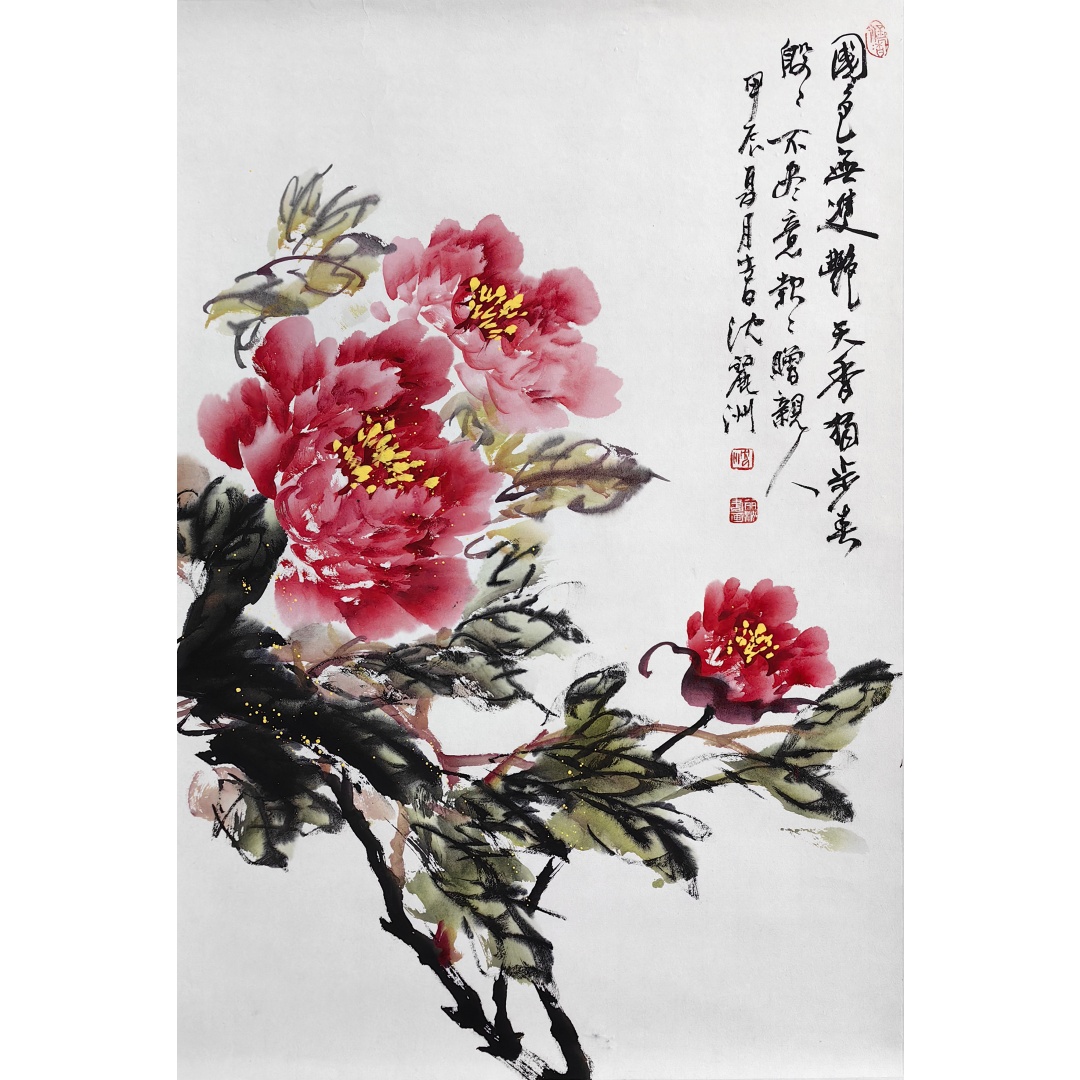 國色無雙艷天香獨步春
殷々不盡意款々贈親人
甲辰夏月書沈麗洲